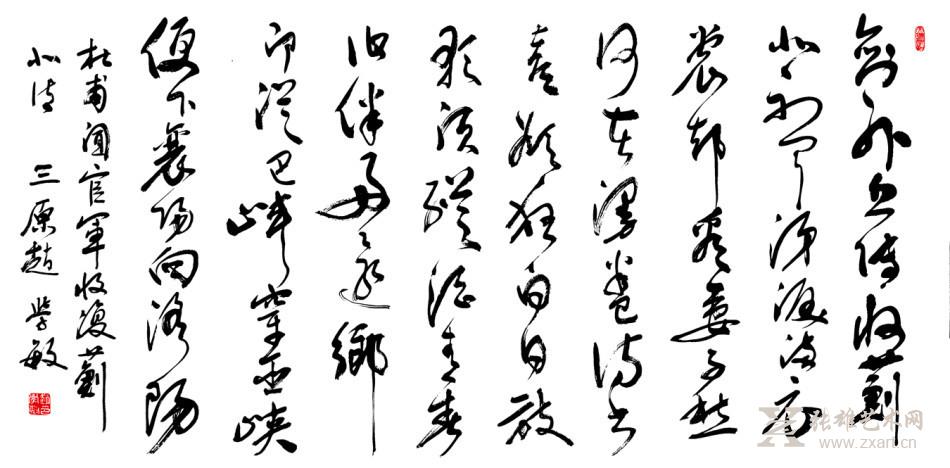 劍外忽傳收薊
北初聞涕淚滿衣
裳却看妻子愁
何在漫卷詩書
喜欲狂白日放
歌須縱酒青春
作伴好還鄉
即從巴峽穿巫峽
便下襄陽向洛陽
杜甫聞官軍收復薊
北詩 三原趙學敏
张雄艺术网
www.zxart.cn